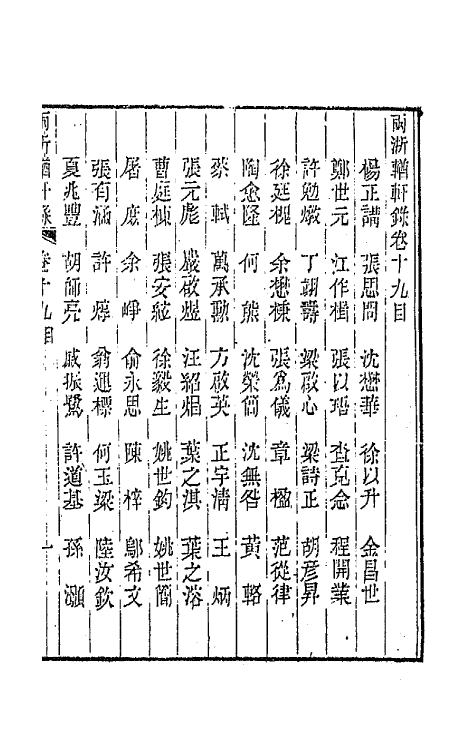 兩浙輶軒錄卷十九目
楊正講 張思問 沈懋華 徐以升 金昌世
鄭世元 江作楫 張以珸 查克念 程開業
許勉燉 丁詡 梁啟心 梁詩正 胡彥昇
徐廷槐 余懋棅 張爲儀 章楹 范從律
陶愈隆 何熊 沈榮簡 沈無咎 黃輅
蔡軾 萬承勳 方啟英 正宇淸 王炳
張元彪 嚴啟煜 汪紹焻 葉之淇 葉之溶
曹庭棟 張安絃 徐毅生 姚世鈞 姚世簡
屠庶 余崢 俞永思 陳梓 鄔希文
張有涵 許燽 翁運標 何玉梁 陸汝欽
夏兆豐 胡師亮 戚振鷺 許道基 孫灝
兩浙輶軒錄 卷十九目 一